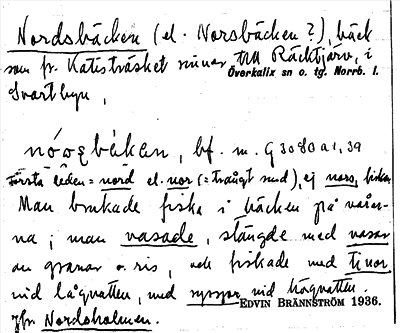 Nordsbäcken (el. Norsbäcken?), bäck
som fr. Katisträsket rinner till Räcktjärv, i
Överkalix sn o. tg. Norrb. l.
Svartbyn,
bf. m. G 3080 a 1, 39
Första leden = nord el. nor (= trångt sund), ej nors, fisken
Man brukade fiska i bäcken på vårar-
na; man vasade, stängde med vasar
av granar o. ris, och fiskade med tinor
vid lågvatten, med ryssjor vid högvatten.
EDVIN BRÄNNSTRÖM 1936.
Jfr Nordsholmen.